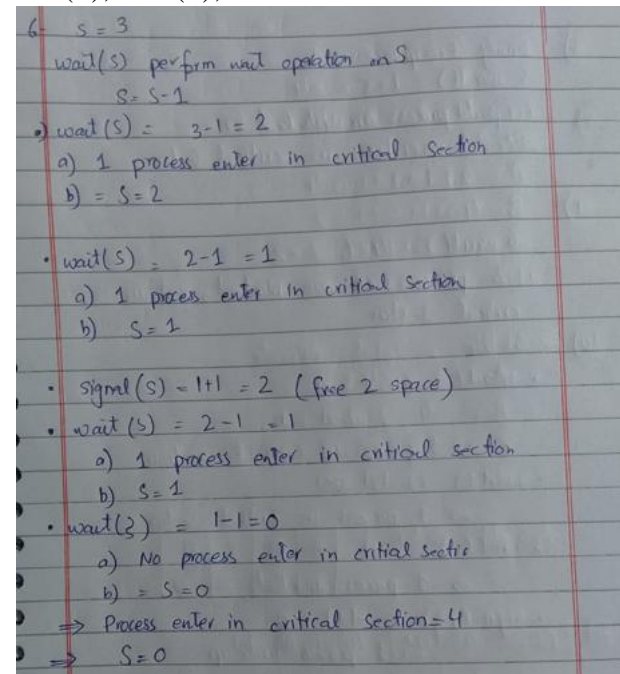 6- S = 3
wait(S) perform wait operation on S
S = S-1
•) wait (S) = 3-1 = 2
a) 1 process enter in critical section
b) = S = 2
• wait(S) = 2-1 = 1
a) 1 process enter in critical section
b) S = 1
• signal (S) = 1+1 = 2 (free 2 space)
• wait (S) = 2-1 = 1
a) 1 process enter in critical section
b) S = 1
• wait(3) = 1-1 = 0
a) No process enter in critial sectio
b) = S = 0
⇒ Process enter in critical section = 4
⇒ S = 0